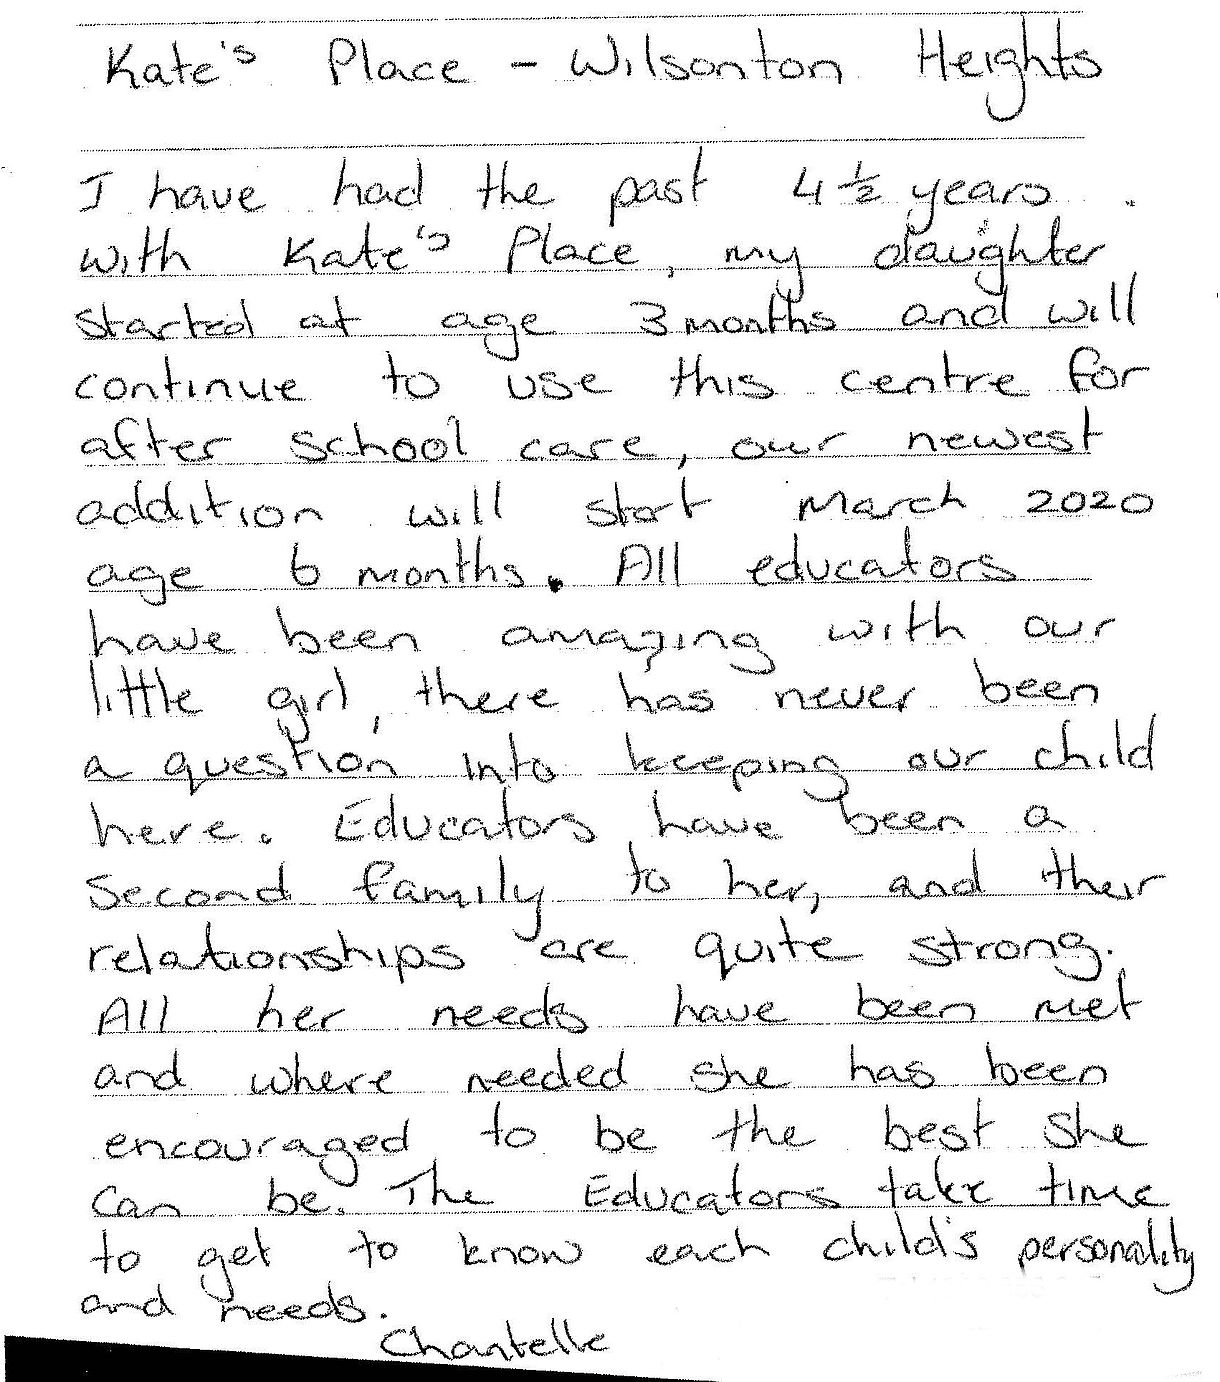 Kate's Place - Wilsonton Heights
I have had the past 4 ½ years
with Kate's Place, my daughter
started at age 3 months and will
continue to use this centre for
after school care, our newest
addition will start March 2020
age 6 months. All educators
have been amazing with our
little girl, there has never been
a question into keeping our child
here. Educators have been a
Second family to her, and their
relationships are quite strong.
All her needs have been met
and where needed she has been
encouraged to be the best she
can be. The Educators take time
to get to know each child's personality
and needs.
Chantelle